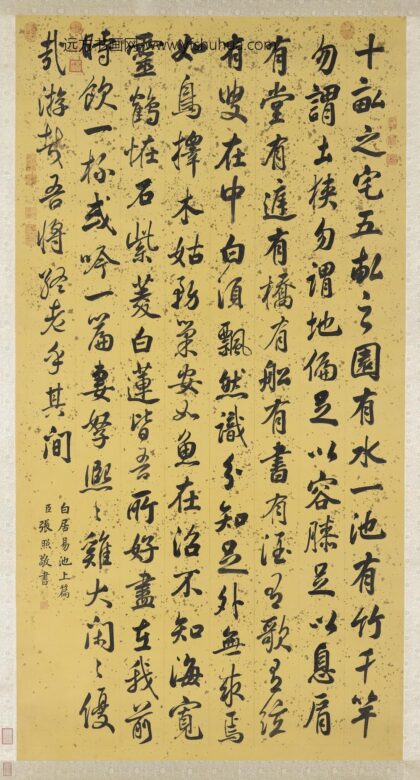 十畝之宅五畝之園有水一池有竹千竿
勿謂土狹勿謂地偏足以容膝足以息肩
有堂有庭有橋有船有書有酒有歌有絃
有叟在中白須飄然識分知足外無求焉
如鳥擇木姑務巢安如魚在沼不知海寬
靈鶴怪石紫菱白蓮皆吾所好盡在我前
時飲一杯或吟一篇妻孥熙〻雞犬閑〻優
哉游哉吾將終老乎其間
白居易池上篇
臣張照敬書